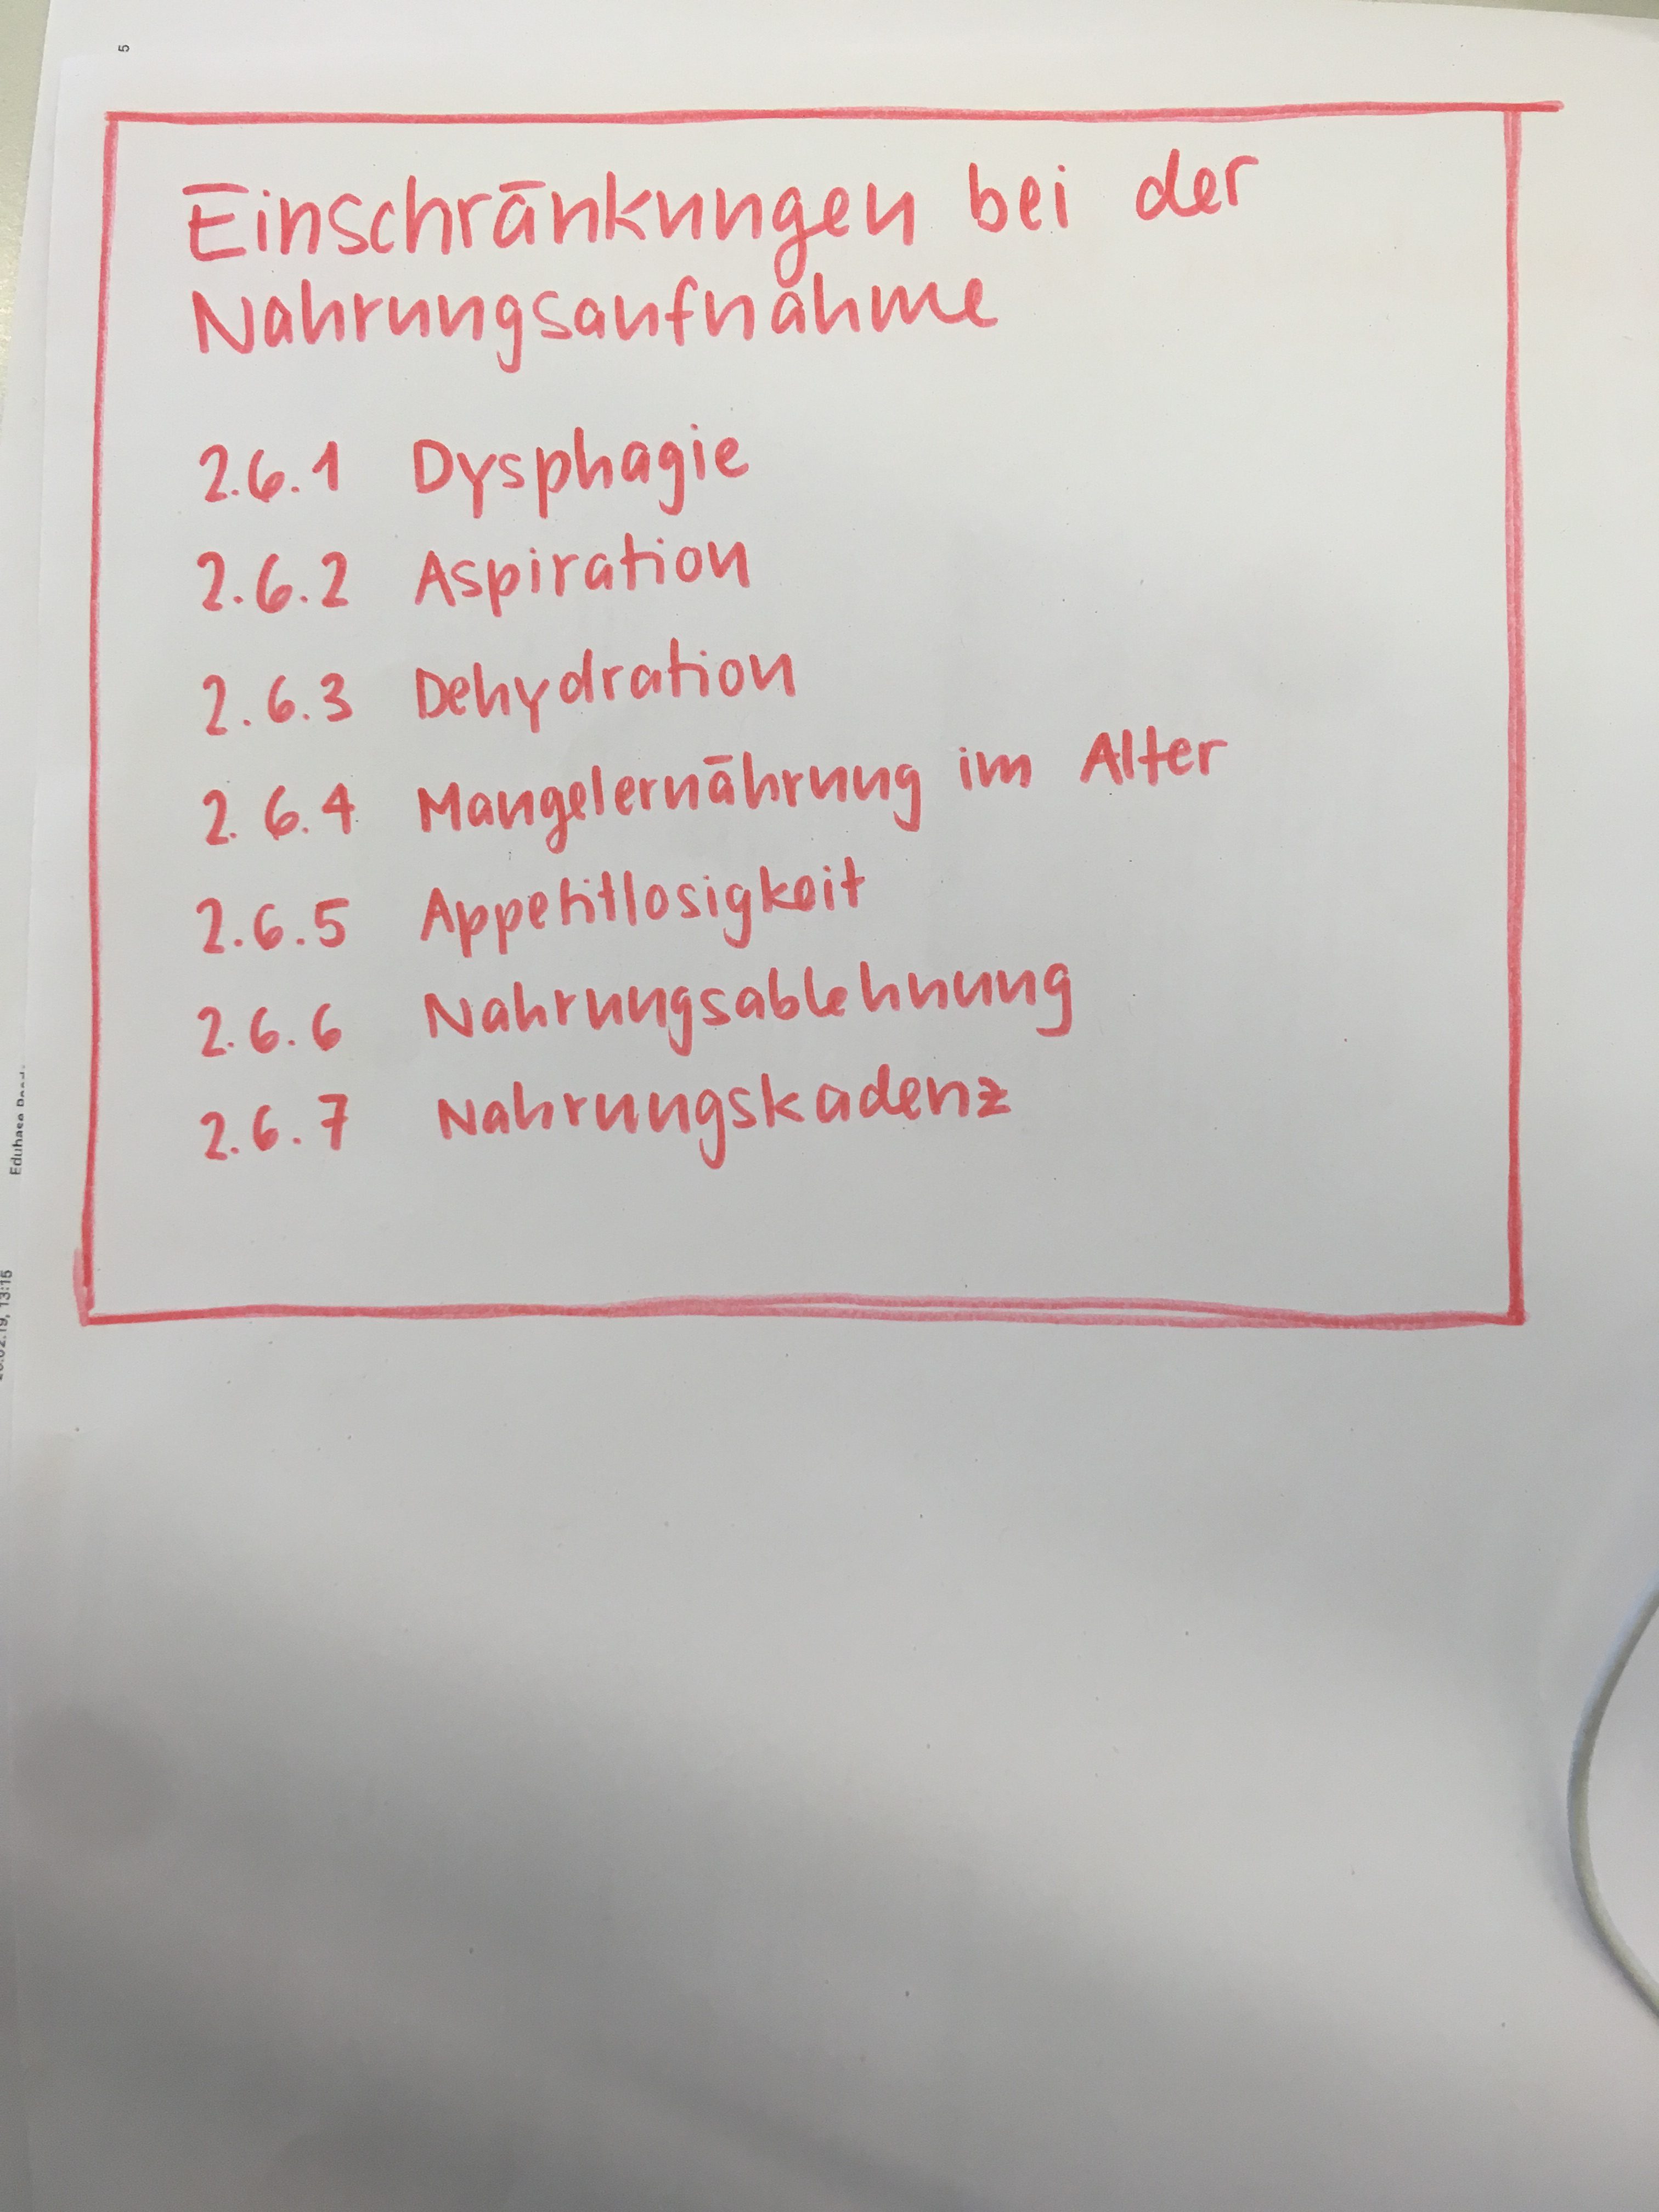 5
Einschränkungen bei der
Nahrungsaufnahme
2.6.1 Dysphagie
2.6.2 Aspiration
2.6.3 Dehydration
2.6.4 Mangelernährung im Alter
2.6.5 Appetitlosigkeit
2.6.6 Nahrungsablehnung
2.6.7 Nahrungskadenz
Eduhase
13:15